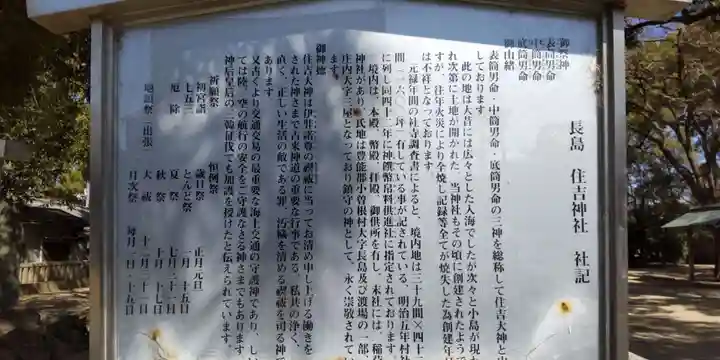 長島 住吉神社 社記
御祭神
表筒男命
中筒男命
底筒男命
御由緒
表筒男命・中筒男命・底筒男命の三神を総称して住吉大神と
しております
此の地は大昔には広々とした入海でしたが次々と小島が現
れ次第に土地が開かれた、当神社もその頃に創建されたよう
すが、往年火災により全焼し記録等全てが焼失した為創建年
は不祥となっております
元禄年間の社寺調査書によると、境内地は三十九間×四十
間(一六〇〇坪)有している事が記されている、明治五年村社
に列し同四十一年に神饌幣帛料供進社に指定されております
境内は、本殿、幣殿、拝殿、御供所を有し、末社には、稲
神社があり、当地は豊能郡小曽根村大字長島及び渡場の一部
庄内大字三屋となってお鎮守の神として、永く崇敬されて
ます。
御神徳
住吉大神は伊弉諾尊の禊祓に当ってお清め申し上げる働きを
された神さまで古来神道の重要な行事である、私共の浄く、
直く、正しい生活の敵である罪、汚穢を清める禊祓を司る神で
あります
又古くより交通交易の最重要な海上交通の守護神であり、し
ては陸、空の航行の安全をご守護なさる神さまでもあります
神后皇后の三韓征伐でも加護を授けたと伝えられています。
祈願祭
初宮詣
七五三
厄除
地鎮祭(出張)
恒例祭
歳旦祭 正月元旦
とんど祭 一月十五日
夏祭 七月二十一日
秋祭 十月十七日
大祓 十二月三十一日
月次祭 毎月一日・十五日